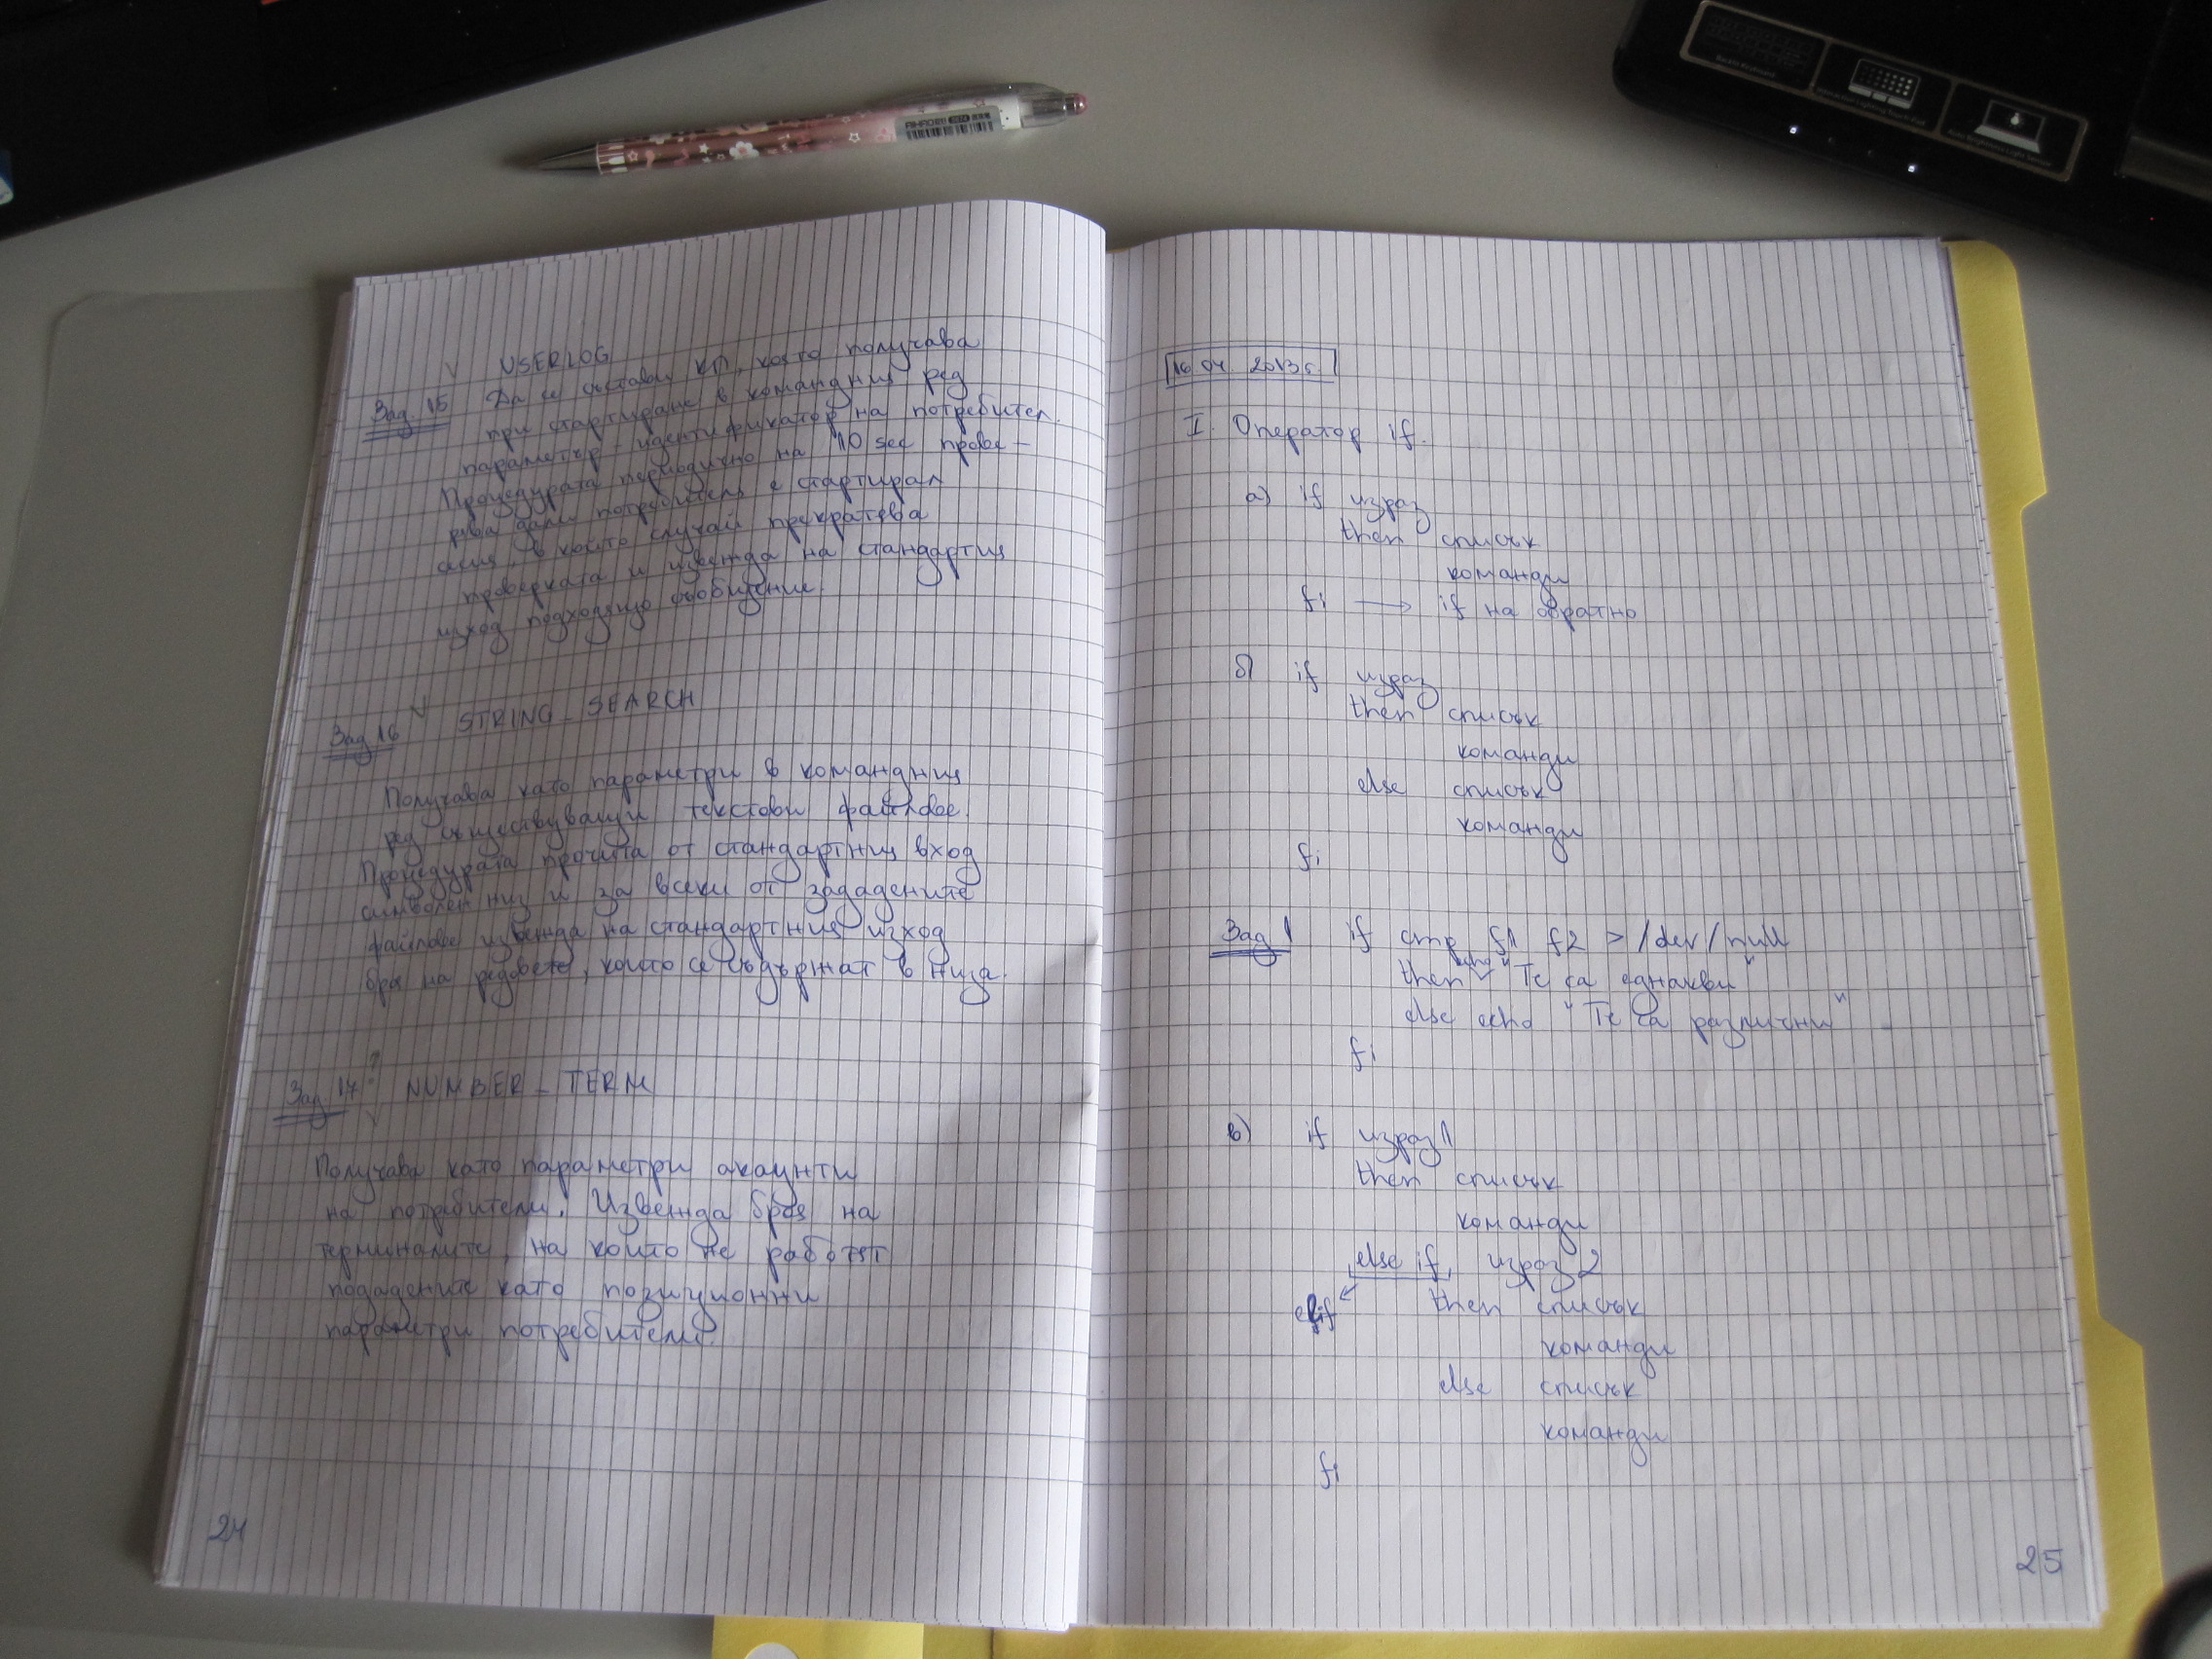 USERLOG
Зад. 15 Да се състави КП, която получава
при стартиране в командния ред
параметър - идентификатор на потребител.
Процедурата периодично на 10 sec прове-
рява дали потребителя е стартирал
в който случай прекратява
проверката и извежда на стандартния
изход подходящо съобщение.
Зад 16 STRING_SEARCH
Получава като параметри в командния
ред съществуващи текстови файлове.
Процедурата прочита от стандартния вход
символен низ и за всеки от зададените
файлове извежда на стандартния изход
броя на редовете, които се съдържат в низа.
Зад 17 ? NUMBER_TERM
Получава като параметри акаунти
на потребители. Извежда броя на
терминалите, на които не работят
подадените като позиционни
параметри потребители.
24
16.04.2013г.
I. Оператор if.
а) if израз
then списък
команди
fi → if на обратно
б) if израз
then списък
команди
else списък
команди
fi
Зад 1 if cmp f1 f2 > /dev/null
then echo "Те са еднакви"
else echo "Те са различни"
fi
в) if израз1
then списък
команди
else if израз 2
elif then списък
команди
else списък
команди
fi
25